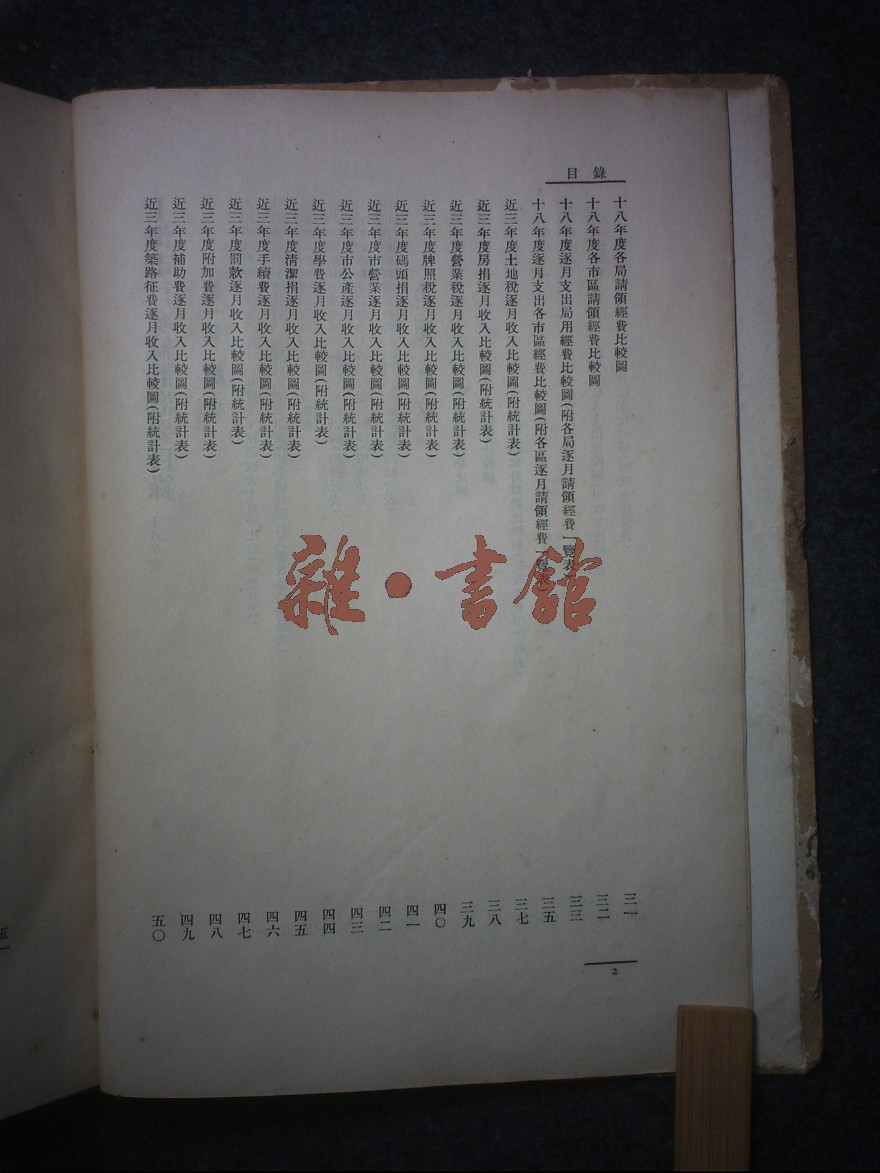 目錄
十八年度各局請領經費比較圖 三一
十八年度各市區請領經費比較圖 三二
十八年度逐月支出局用經費比較圖(附各局逐月請領經費一覽表) 三三
十八年度逐月支出各市區經費比較圖(附各區逐月請領經費一覽表) 三五
近三年度土地稅逐月收入比較圖(附統計表) 三七
近三年度房捐逐月收入比較圖(附統計表) 三八
近三年度營業稅逐月收入比較圖(附統計表) 三九
近三年度牌照稅逐月收入比較圖(附統計表) 四〇
近三年度碼頭捐逐月收入比較圖(附統計表) 四一
近三年度市營業逐月收入比較圖(附統計表) 四二
近三年度市公產逐月收入比較圖(附統計表) 四三
近三年度學費逐月收入比較圖(附統計表) 四四
近三年度清潔捐逐月收入比較圖(附統計表) 四五
近三年度手續費逐月收入比較圖(附統計表) 四六
近三年度罰款逐月收入比較圖(附統計表) 四七
近三年度附加費逐月收入比較圖(附統計表) 四八
近三年度補助費逐月收入比較圖(附統計表) 四九
近三年度築路征費逐月收入比較圖(附統計表) 五〇
2
五一
雜·書館